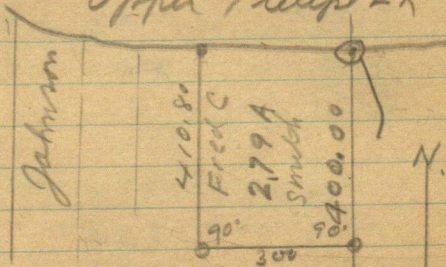 Upper
Johnson
410.80
Fred C
2.79 A
Smith
400.00
N.
90°
90°
300